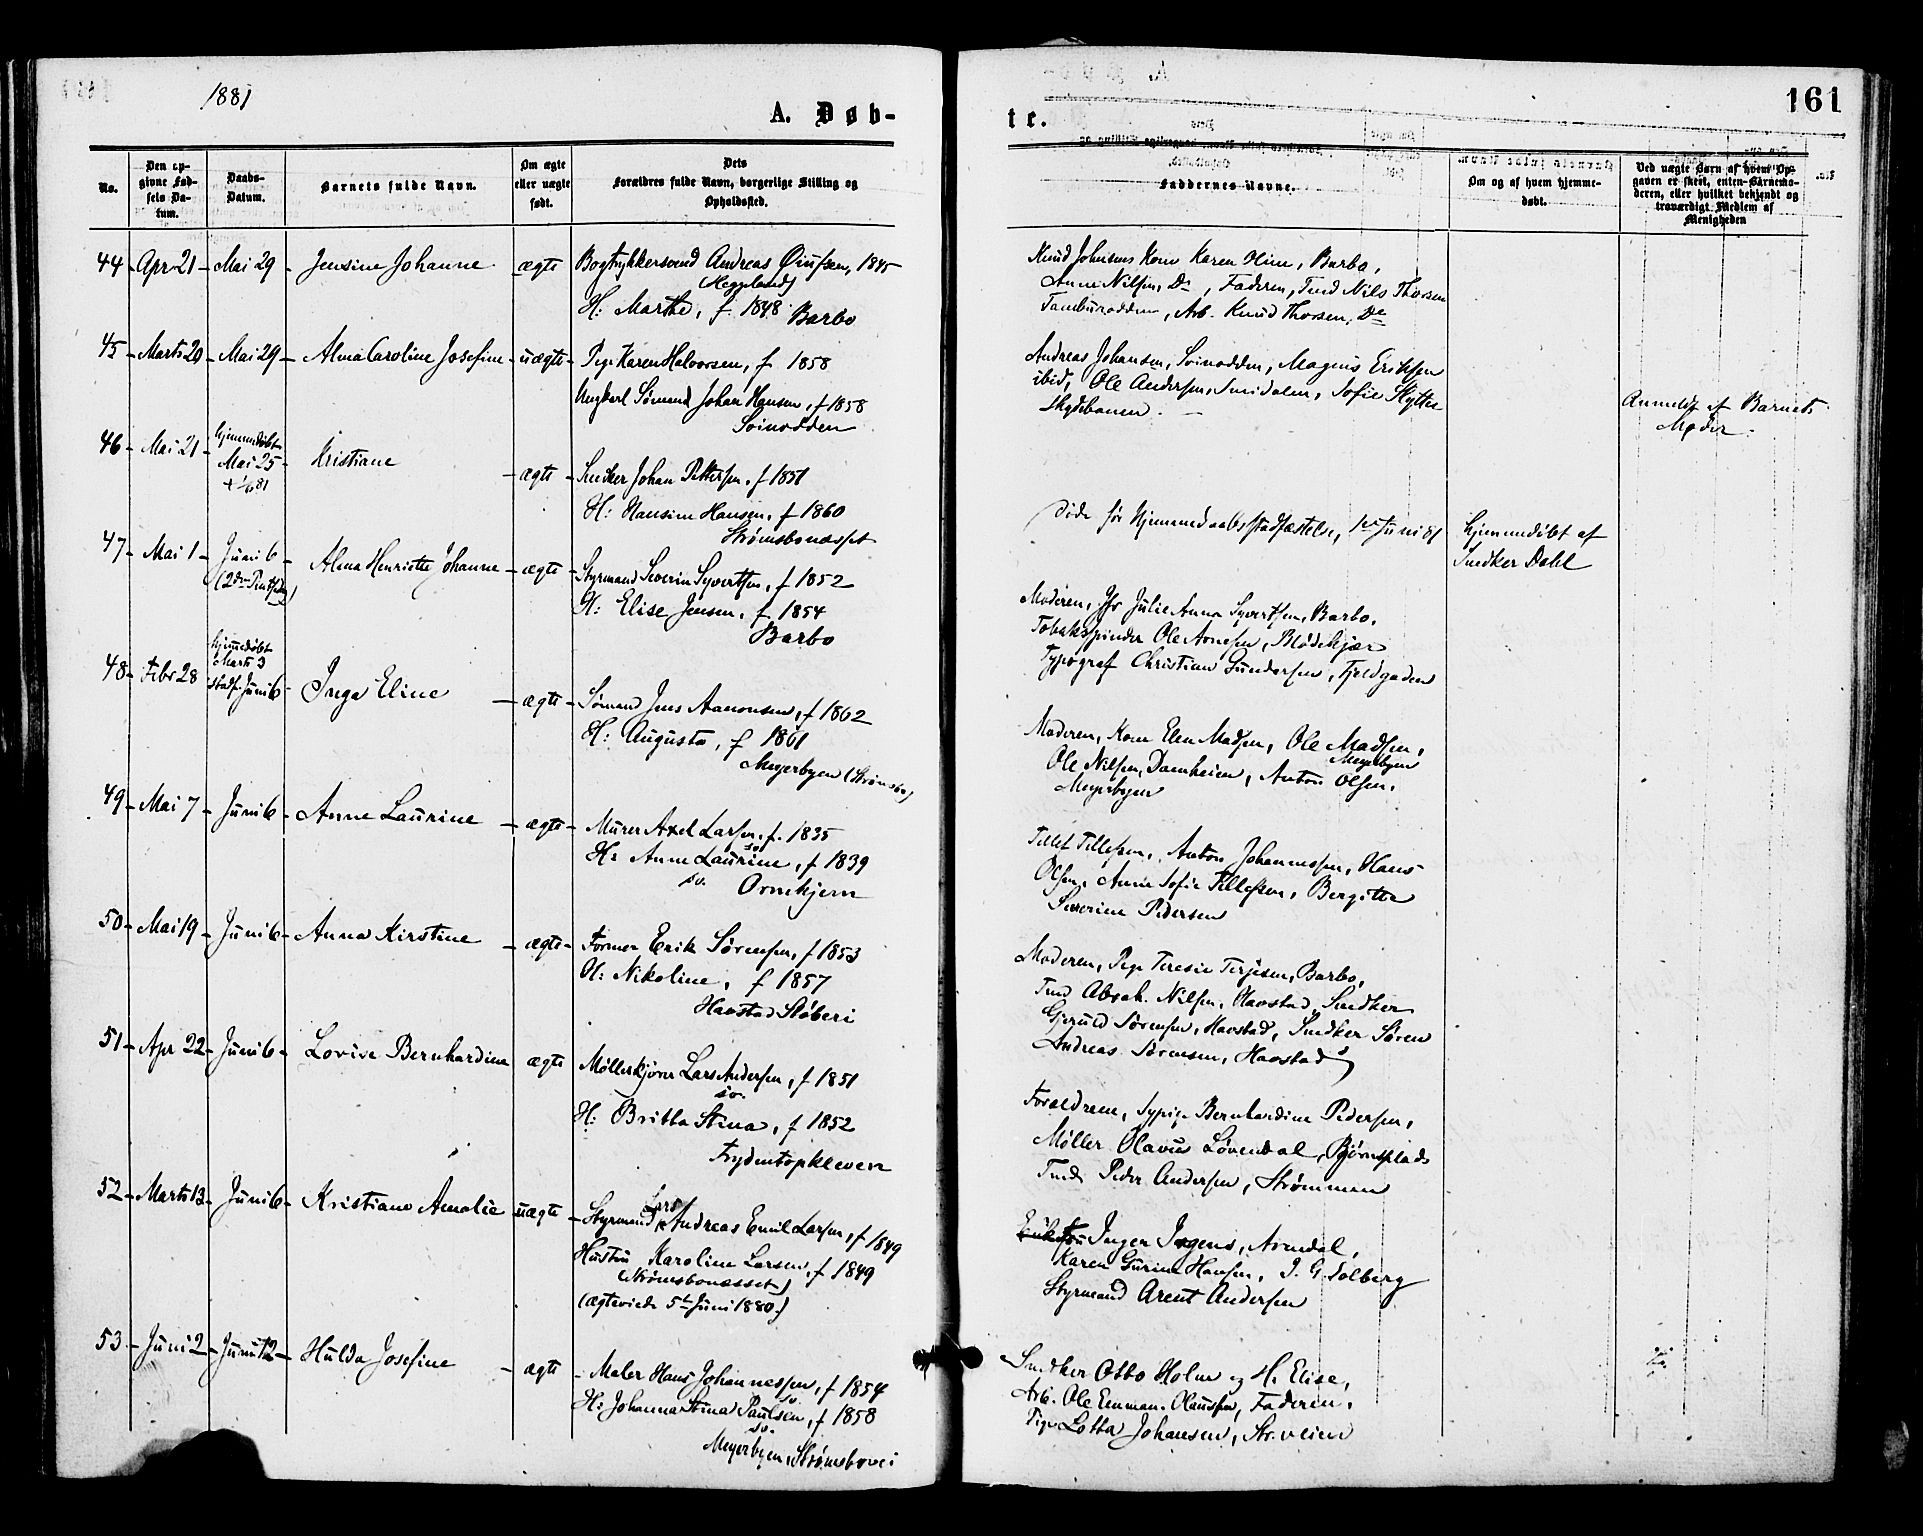 1881
A. Døb-
No.
Den op-
givne Fød-
sels Da-
tum.
Daabs-
Datum.
Barnets fulde Navn.
Om ægte
eller uægte
født.
Dets
Forældres fulde Navn, borgerlige Stilling og
Opholdssted.
44 - Apr 21 - Mai 29 - Jensine Johanne ægte Bogtrykkersvend Andreas 1845
H: Marthe, f. 1848 Barbo
45 - Marts 20 - Mai 29 - Alma Caroline Josefine - uægte - Pige Karen Halvorsen, f 1858
Ungkarl Sømand Johan Hansen, f 1858
Svinodden
46 - Mai 21 - hjemmedøbt
Mai 25 - Kristiane - ægte - Snedker Johan Pettersen, f 1851
81
H: Hansine Hansen, f 1860
Strømsbonæsset
47 - Mai 1 - Juni 6 - Alma Henriette Johanne - ægte - Styrmand Severin Syvertsen, f 1852
H: Elise Jensen, f. 1854
Barbo
48 - Febr 28 hjemmedøbt
Marts 3
stadf. Juni 6 - Inga Eline - ægte - Sømand Jens Aanonsen, f 1862
H: Augusta, f 1861
Meyerbyen (Strømsbo)
49 - Mai 7 - Juni 6 - Anne Laurine - ægte - Murer Axel Larsen, f. 1835
sv.
H: Anne Laurine, f 1839
sv. Ornekjern
50 - Mai 19 - Juni 6 - Anna Kirstine - ægte - Former Erik Sørensen, f 1853
H: Nikoline, f 1857
Havstad Støberi
51 - Apr 22 - Juni 6 - Lovise Bernhardine ægte Møllerkjører Lars Andersen, f 1851
sv.
H: Britta Stina, f 1852
Frydentopkleven
52 - Marts 13 - Juni 6 - Kristiane Amalie uægte - Styrmand Lars Andreas Emil Larsen, f 1849
Hustru Karoline Larsen, f 1849
(Strømsbonæsset)
(ægteviede 5te Juni 1880.)
53 - Juni 2 - Juni 12 - Hulda Josefine - ægte - Maler Hans Johannessen, f 1854
sv.
H: Johanna Stina Paulsen, f 1858
sv.
Meyerbyen, Strømsbovei
te.
161
Faddernes Navne.
Om og af hvem hjemme-
døbt.
Ved uægte Barn af hvem Op-
gaven er skeet, enten Barnemo-
deren, eller hvilket bekjendt og
troværdigt Medlem af
Menigheden
Knud Johnsens Kone Karen Oline, Barbo,
Anne Nilsen, Do, Faderen, Tmd Nils Thorsen
Arb. Knud Thorsen, Do
Andreas Johansen, Svinodden, Magnus Eriksen
ibid, Ole Andersen, Sofie Skytte
Skydebanen. -
Anmeldt af Barnets
Moder.
Døde før Hjemmedaabsstadfæstelse, 1ste Juni 81
Hjemmedøbt af
Snedker Dahl
Moderen, Jfr Julie Anna Syvertsen, Barbo,
Tobakspinder Ole Arnesen, Blødekjær
Typograf Christian Gundersen, Fjeldgaden
Moderen, Kone Elen Madsen, Ole Madsen,
Meyerbyen
Ole Nilsen, Damheien, Anton Olsen,
Meyerbyen
Tillef Tillefsen, Anton Johannessen, Hans
Olsen, Anne Sofie Tillefsen, Bergitte
Severine Pedersen
Moderen, Pige Teresie Terjesen, Barbo,
Tmd Abrah. Nilsen, Havstad, Snedker
Gjeruld Sørensen, Havstad, Snedker Søren
Andreas Sørensen, Havstad
Forældrene, Sypige Bernhardine Pedersen,
Møller Olavus Løvendal, Bjørnsplads
Tmd. Peder Andersen, Strømmen
Fru Inger Jrgens, Arendal,
Karen Gurine Hansen, J. G. Solberg
Styrmand Arent Andersen
Snedker Otto Holm og H. Elise,
Arb. Ole Emman. Olaussen, Faderen,
Pige Lotta Johansen, Str.veien